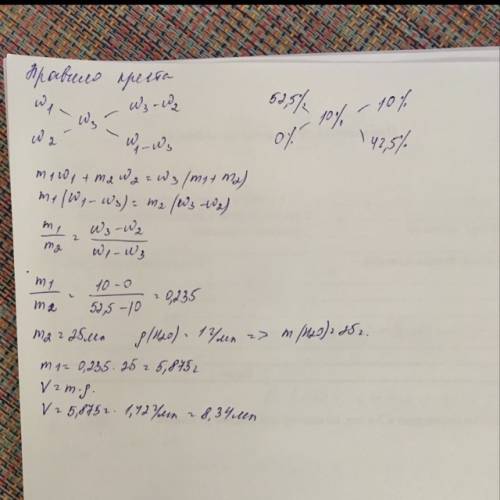 Правило креста
ω1 ω3 ω3-ω2 52,5% 10% 10%
ω2 ω1-ω3 0% 42,5%
m1ω1 + m2ω2 = ω3(m1+m2)
m1(ω1-ω3) = m2(ω3-ω2)
m1/m2 = ω3-ω2/ω1-ω3
m1/m2 = 10-0/52,5-10 = 0,235
m2 = 25мл ρ(H2O) = 1г/мл => m(H2O) = 25г.
m1 = 0,235 · 25 = 5,875г
V = m·ρ.
V = 5,875г · 1,42г/мл = 8,34мл